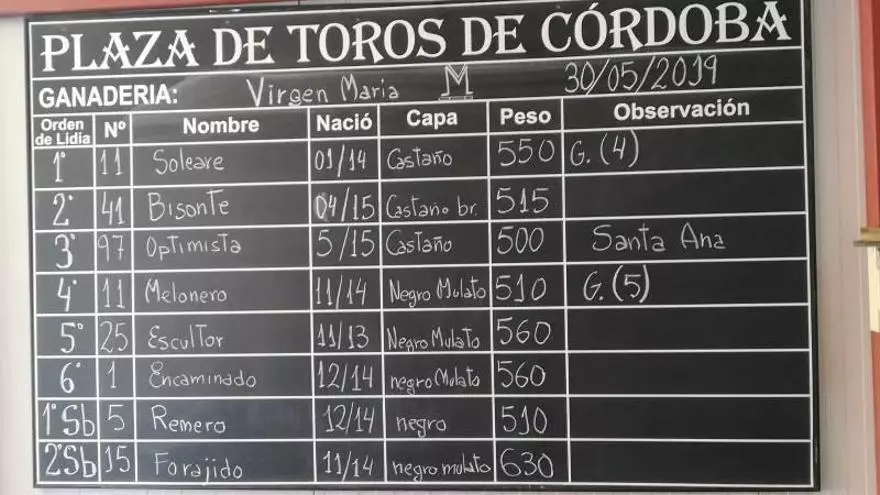 PLAZA DE TOROS DE CÓRDOBA
GANADERIA: Virgen Maria M 30/05/2019
Orden de Lidia Nº Nombre Nació Capa Peso Observación
1º 11 Soleare 01/14 Castaño 550 G. (4)
2º 41 Bisonte 04/15 Castaño br. 515
3º 97 Optimista 5/15 Castaño 500 Santa Ana
4º 11 Melonero 11/14 Negro Mulato 510 G. (5)
5º 25 Escultor 11/13 Negro Mulato 560
6º 1 Encaminado 12/14 negro Mulato 560
1º Sb 5 Remero 12/14 negro 510
2º Sb 15 Forajido 11/14 negro mulato 630